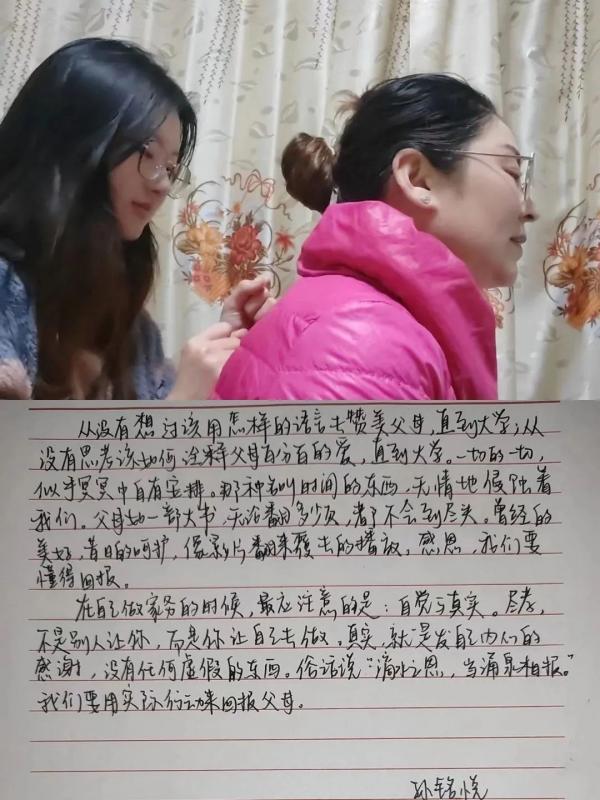 从没有想过该用怎样的语言去赞美父母,直到大学;从
没有思考该如何诠释父母百分百的爱,直到大学。一切的一切,
似乎冥冥中自有安排。那种名叫时间的东西,无情地侵蚀着
我们。父母如一部大书,无论翻多少页,都不会到尽头。曾经的
美好,昔日的呵护,像影片翻来覆去的播放。感恩,我们要
懂得回报。
在自己做家务的时候,最应注意的是:自觉与真实。尽孝,
不是别人让你,而是你让自己去做。真实,就是发自内心的
感谢,没有任何虚假的东西。俗话说“滴水之恩,当涌泉相报。”
我们要用实际行动来回报父母。
孙铭悦